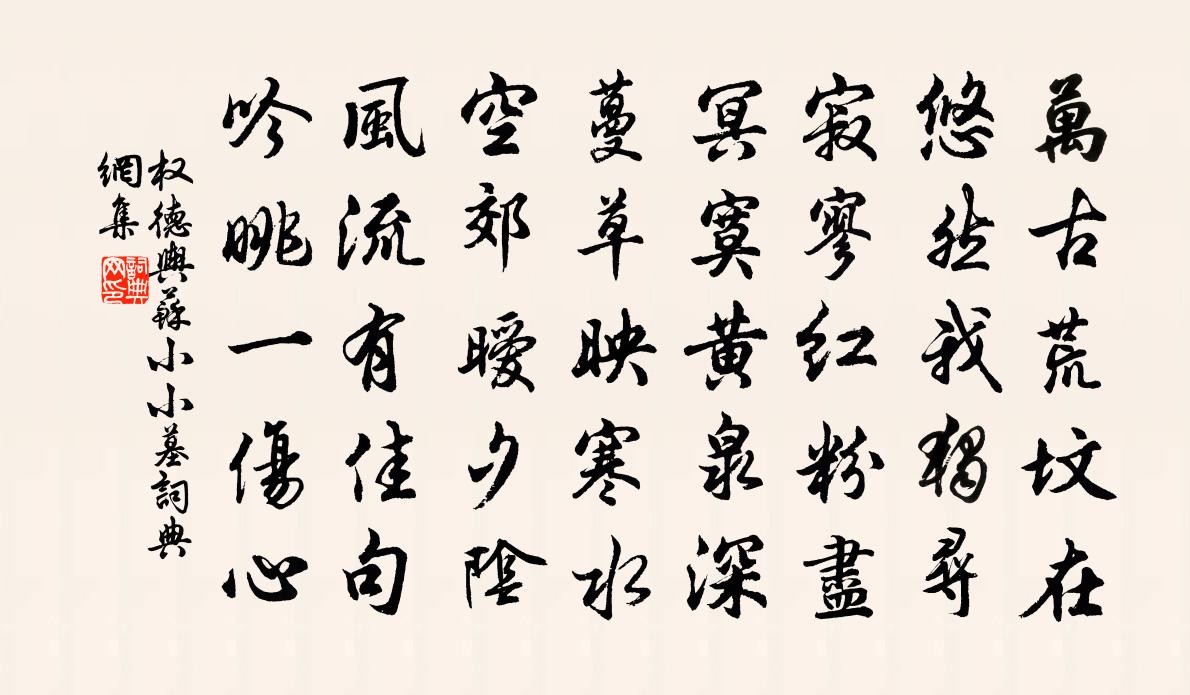 萬古荒墳在
悠然我獨尋
寂寥红粉盡
冥寞黄泉深
蔓草映寒水
空郊曖夕陰
風流有佳句
吟眺一傷心
权德輿蘇小小墓詞典
網集
詞典
网印